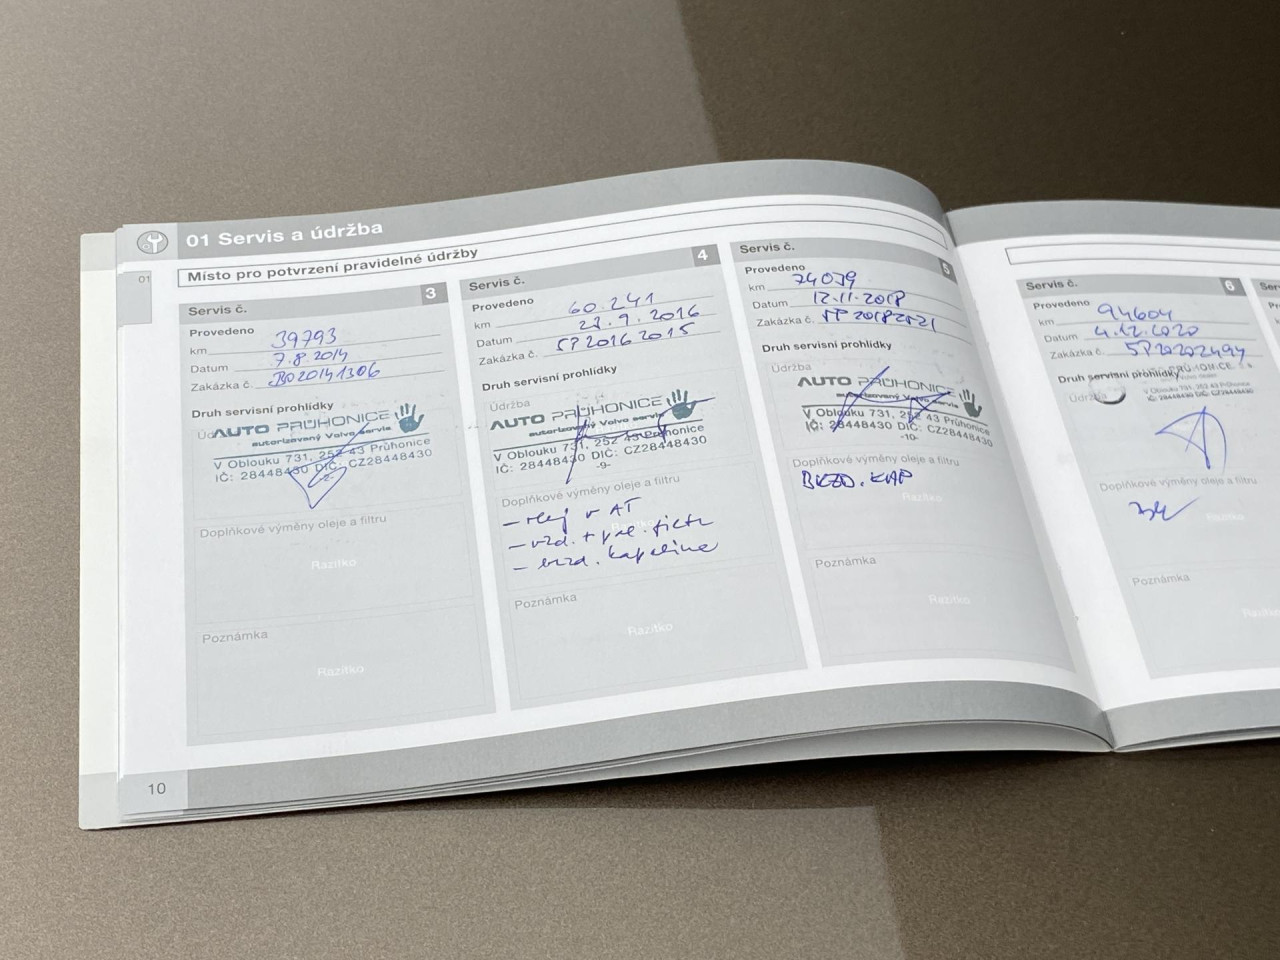 01 Servis a údržba
01
Místo pro potvrzení pravidelné údržby
Servis č. 3
Provedeno
km 39793
Datum 7.8.2014
Zakázka č. BO20141306
Druh servisní prohlídky
AUTO PRŮHONICE
autorizovaný Volvo servis
V Oblouku 731, 252 43 Průhonice
IČ: 28448430 DIČ: CZ28448430
Doplňkové výměny oleje a filtru
Razítko
Poznámka
Razítko
Servis č. 4
Provedeno
km 60.241
Datum 29.9.2016
Zakázka č. SP20162015
Druh servisní prohlídky
Údržba
AUTO PRŮHONICE
autorizovaný Volvo servis
V Oblouku 731, 252 43 Průhonice
IČ: 28448430 DIČ: CZ28448430
-9-
Doplňkové výměny oleje a filtru
– olej v AT
– vzd. + pal. filtr
– brzd. kapalina
Poznámka
Razítko
Servis č. 5
Provedeno
km 74079
Datum 12.11.2018
Zakázka č. SP20182521
Druh servisní prohlídky
Údržba
AUTO PRŮHONICE
autorizovaný Volvo servis
V Oblouku 731, 252 43 Průhonice
IČ: 28448430 DIČ: CZ28448430
-10-
Doplňkové výměny oleje a filtru
BRZD. KAP
Razítko
Poznámka
Razítko
Servis č. 6
Provedeno
km 94604
Datum 4.12.2020
Zakázka č. SP20202494
Druh servisní prohlídky
Údržba
V Oblouku 731, 252 43 Průhonice
IČ: 28448430 DIČ: CZ28448430
Doplňkové výměny oleje a filtru
Razítko
Poznámka
Razítko
10